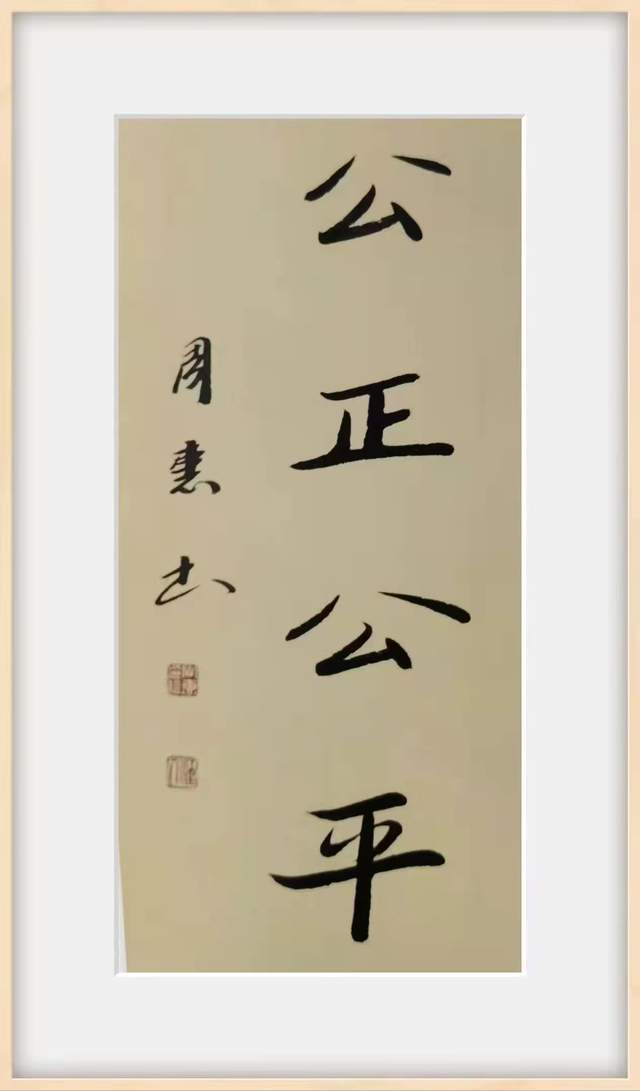 公正公平
周惠书